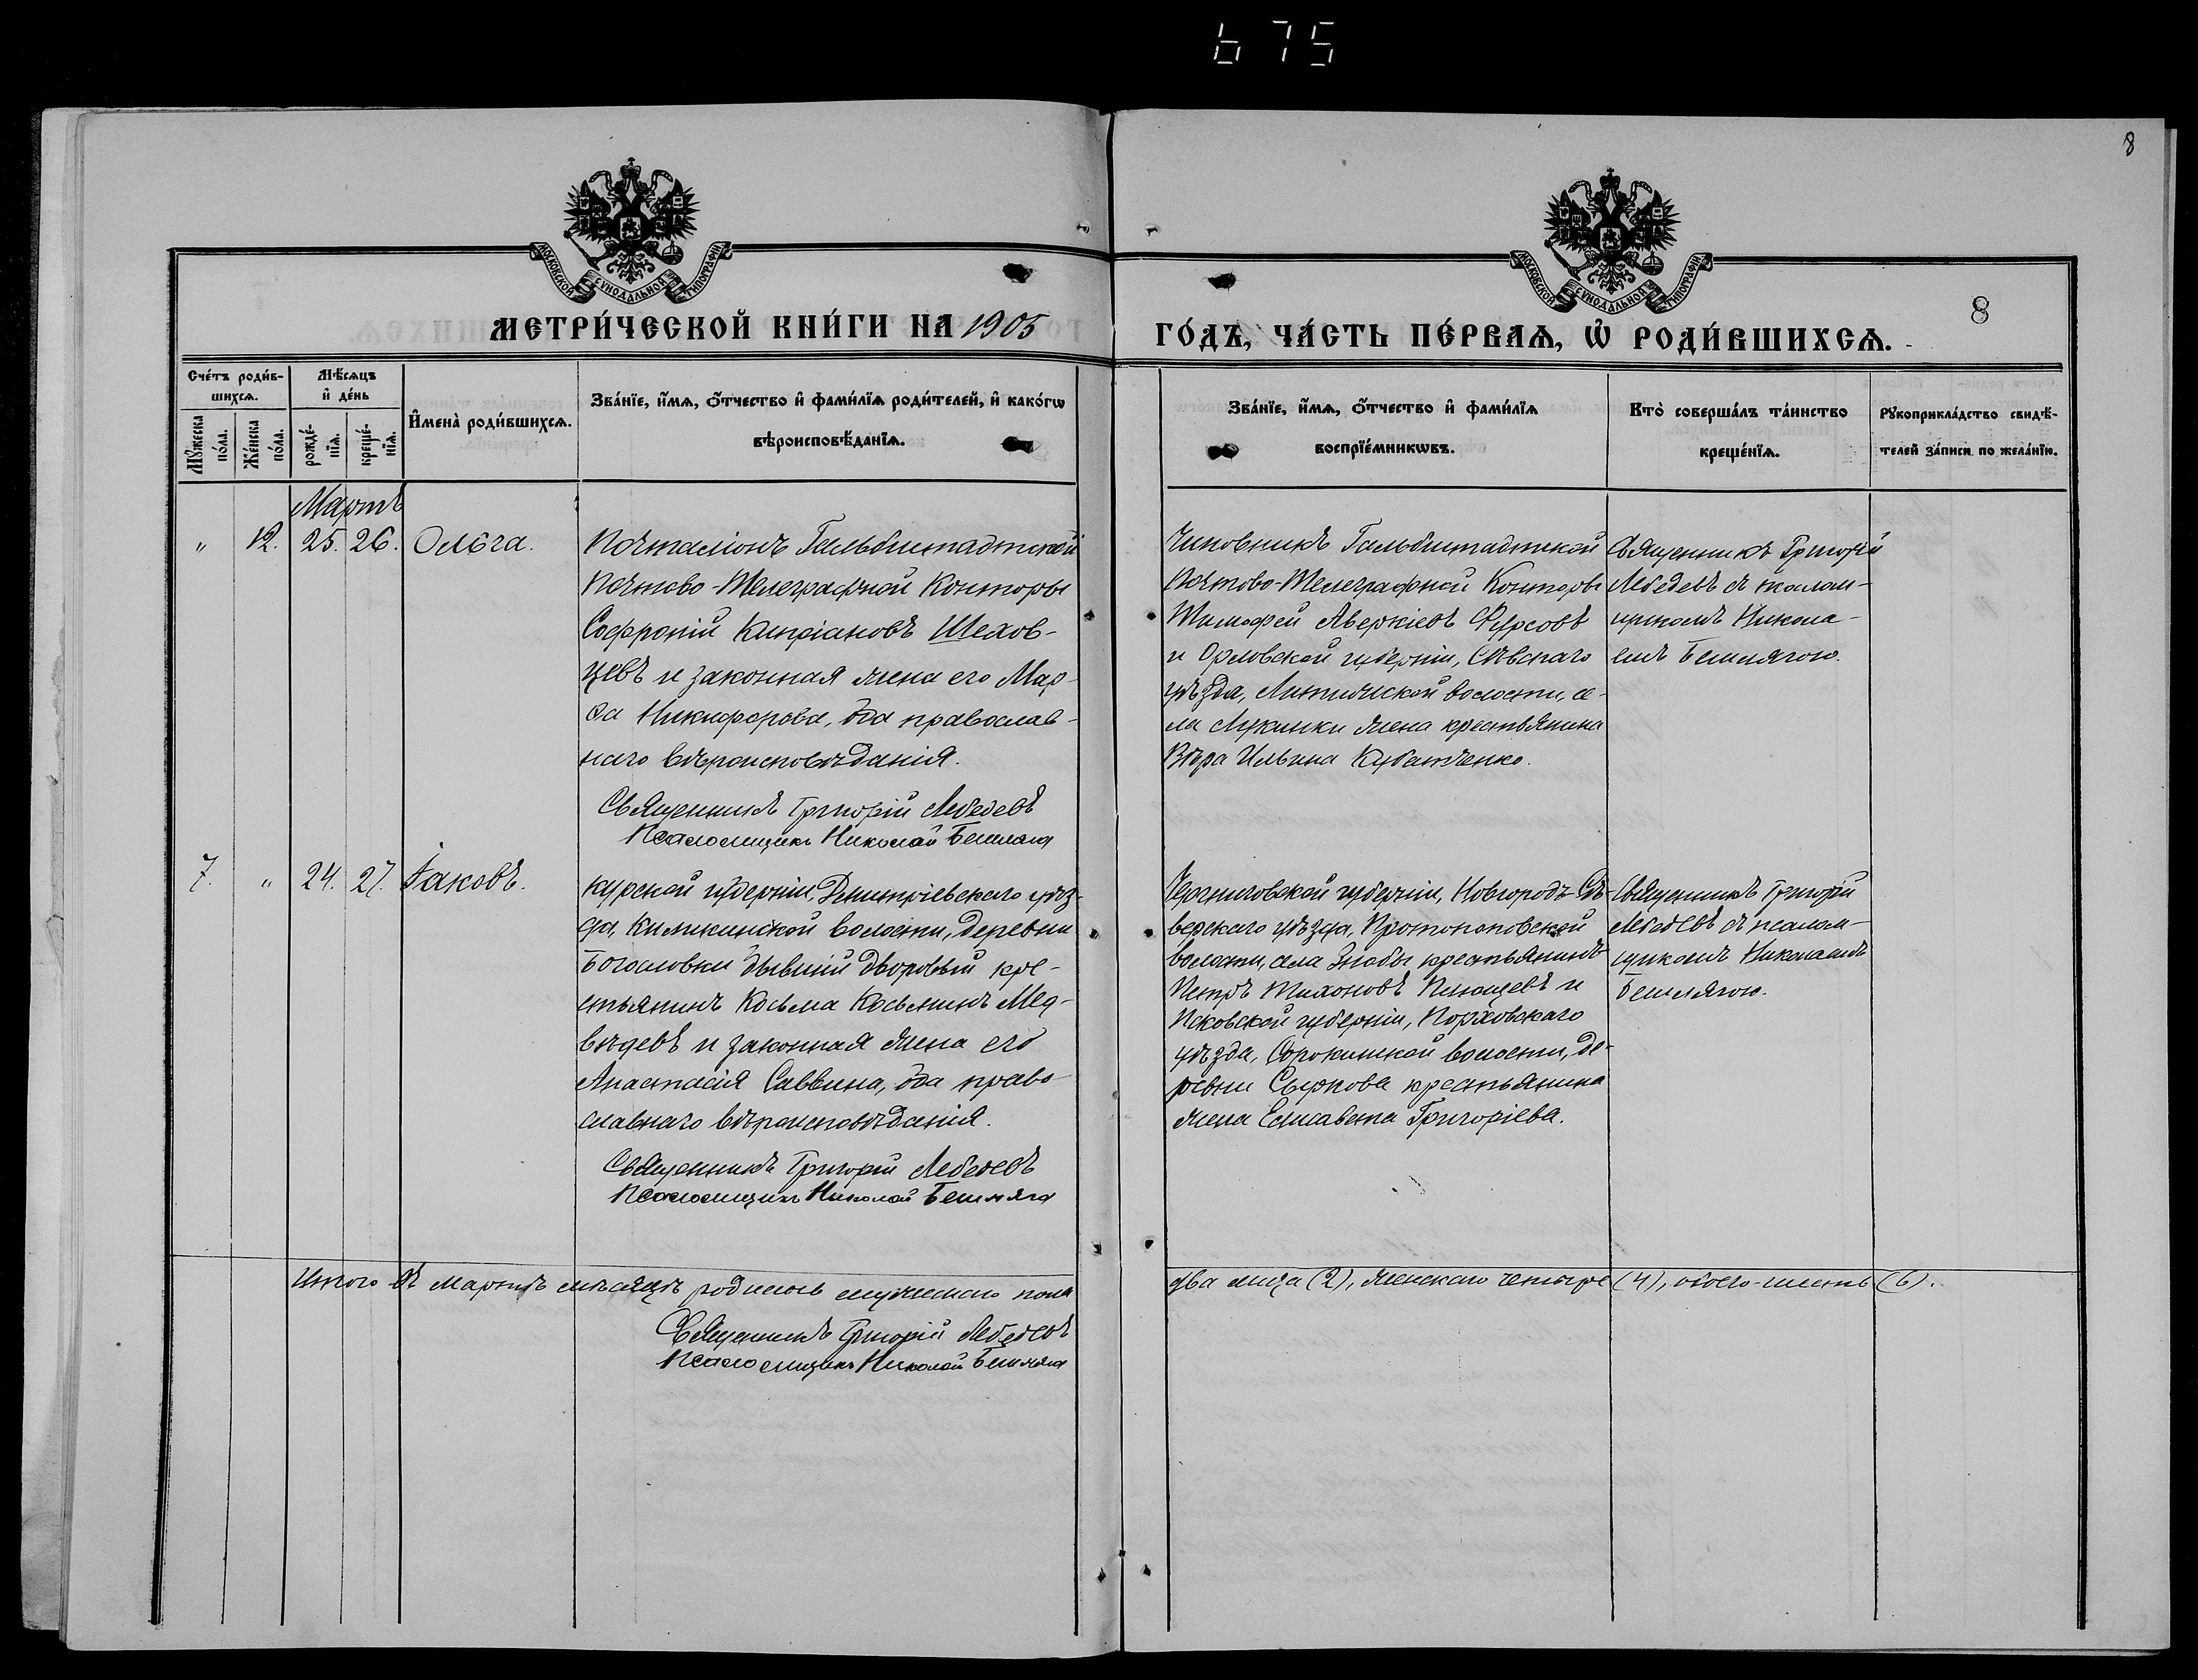 675
8
МОСКОВСКОЙ СУНОДАЛЬНОЙ ТИПОГРАФІИ
МОСКОВСКОЙ СУНОДАЛЬНОЙ ТИПОГРАФІИ
8
МЕТРИ́ЧЕСКОЙ КНИ́ГИ НА 1905
ГО́ДЪ, ЧА́СТЬ ПЕ́РВАѦ, Ѡ҆ РОДИ́ВШИХСѦ.
Сче́тъ роди́в-
шихсѧ.
Мꙋ́жеска по́ла.
Же́нска по́ла.
Мѣ́сѧцъ
и҆ де́нь
рожде́-
нїѧ.
креще́-
нїѧ.
И҆мена̀ роди́вшихсѧ.
Зва́нїе, и҆́мѧ, ѻ҆́тчество и҆ фами́лїѧ роди́телей, и҆ како́гѡ
вѣроисповѣ́данїѧ.
Зва́нїе, и҆́мѧ, ѻ҆́тчество и҆ фами́лїѧ
воспрїе́мникѡвъ.
Кто̀ соверша́лъ та́инство
креще́нїѧ.
Рꙋкоприкла́дство свидѣ́-
телей за́писи по жела́нїю.
Мартъ
" 12. 25. 26. Ольга.
Почталіонъ Гальбштадтской
Почтово-Телеграфной Конторы
Софроній Кипріановъ Шехов-
цевъ и законная жена его Мар-
ѳа Никифорова, оба православ-
наго вѣроисповѣданія.
Священникъ Григорій Лебедевъ
Псаломщикъ Николай Бешляга
Чиновникъ Гальбштадтской
Почтово-Телеграфной Конторы
Тимофей Аверкіевъ Фурсовъ
и Орловской губерніи, Сѣвскаго
уѣзда, волости, се-
ла Лукинки жена крестьянина
Вѣра Ильина
Священникъ Григорій
Лебедевъ съ псалом-
щикомъ Никола-
емъ Бешлягою.
7. " 24. 27. Іаковъ.
Курской губерніи, Дмитріевскаго уѣз-
да, Киликинской волости, деревни
Богословки бывшій дворовый кре-
стьянинъ Косьма Косьминъ Мед-
вѣдевъ и законная жена его
Анастасія Саввина, оба право-
славнаго вѣроисповѣданія.
Священникъ Григорій Лебедевъ
Псаломщикъ Николай Бешляга
Черниговской губерніи, Новгородъ-Сѣ-
верскаго уѣзда, Протопоповской
волости, села Знобы крестьянинъ
Петръ Тихоновъ и
Псковской губерніи, Порховскаго
уѣзда, Сорокинской волости, де-
ревни Сыркова крестьянина
жена Елисавета Григоріева.
Священникъ Григорій
Лебедевъ съ псалом-
щикомъ Николаемъ
Бешлягою.
Итого въ мартѣ мѣсяцѣ родилось мужескаго пола
два лица (2), женскаго четыре (4), обоего-шесть (6).
Священникъ Григорій Лебедевъ
Псаломщикъ Николай Бешляга